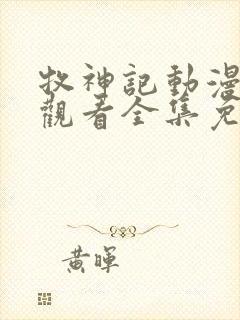 牧神記動漫
觀看全集免
黃暉